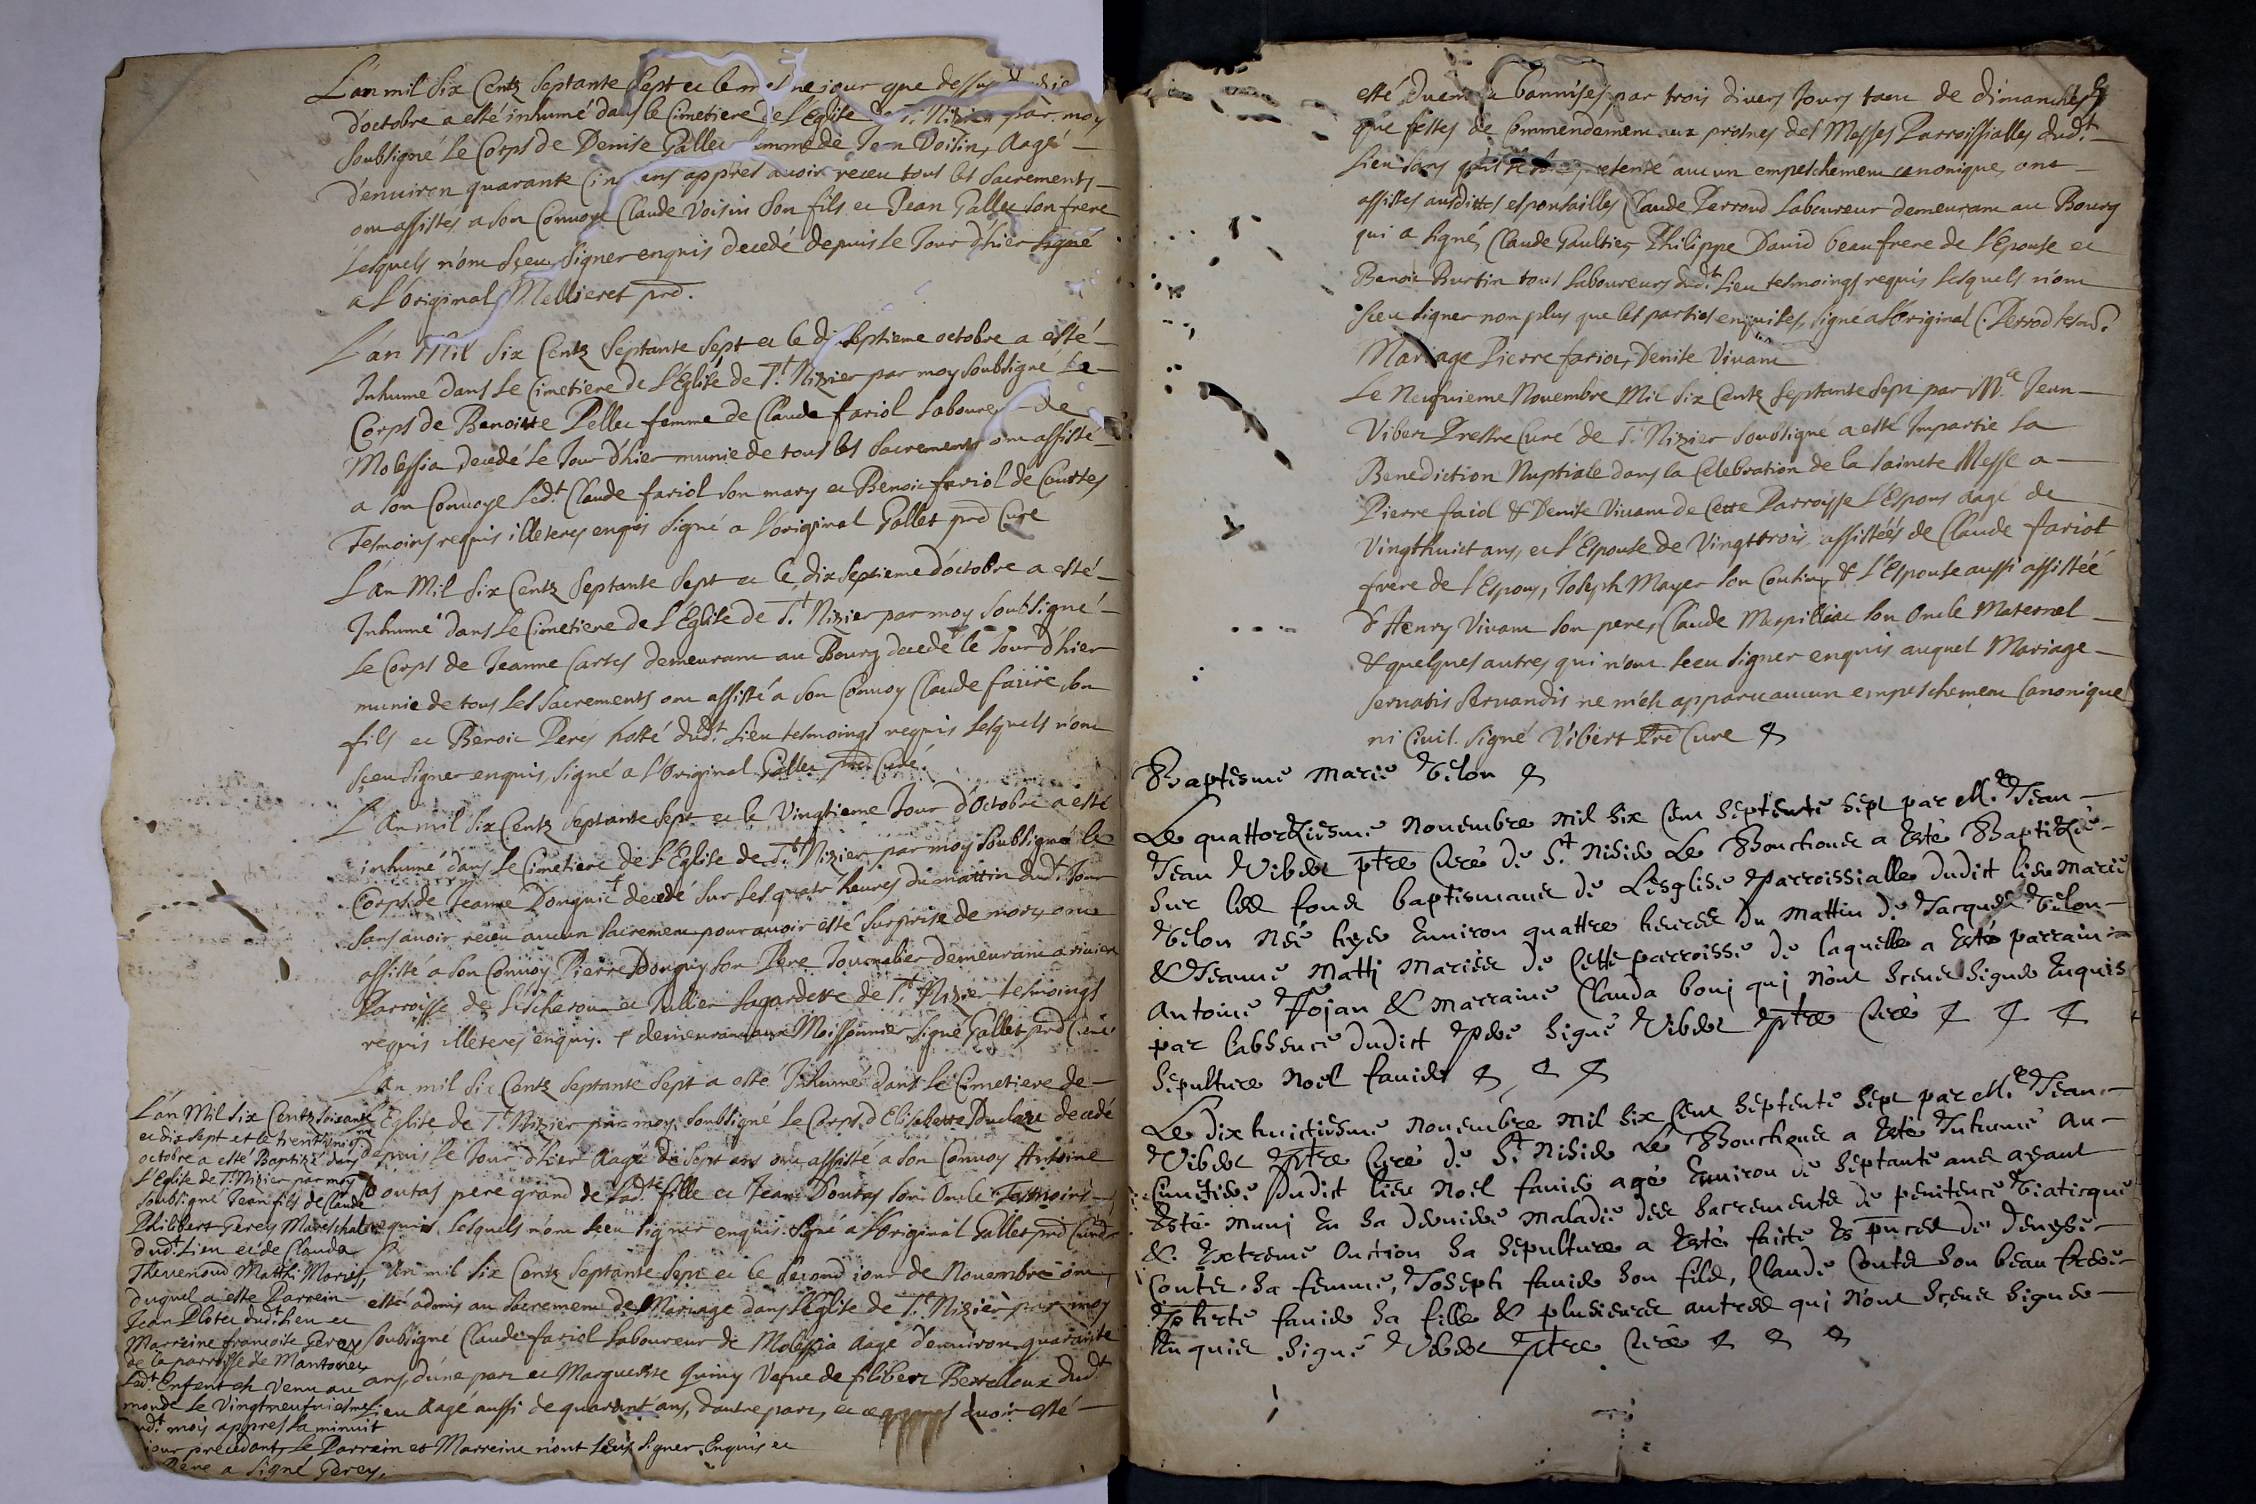 L'an mil Six Centz Septante Sept et le mesme jour que dessus
d'octobre a esté inhumé dans le Cimetiere de l'Eglise de St. Nizier par moy
soubsigné Le Corps de Denise Gallet femme de Jean Voisin, Aagé
d'environ quarante Cinq ans appres avoir receu tous les Sacrements
ont assistes a son Convoye Claude Voisin son fils et Jean Gallet son frere
lesquels n'ont sceu signer enquis decedé depuis le Jour d'hier signé
a L'original Mellieret prd.
L'an Mil Six Centz Septante Sept et le dixseptieme octobre a esté
Inhume dans Le Cimetiere de L'Eglise de St. Nizier par moy soubsigné Le
Corps de Benoitte Pellet femme de Claude fariol Laboureur de
Molessia decedé Le Jour d'hier munie de tous les Sacrements ont assisté
a son Convoye Led.t Claude fariol son mary et Benoit fariol de Courtes
Tesmoins requis illeteres enquis signé a L'original Gallet prd Cure
L'an Mil Six Centz Septante Sept et le dixseptieme d'octobre a esté
Inhumé dans Le Cimetiere de L'Eglise de St. Nizier par moy soubsigné
Le Corps de Jeanne Cartes demeurant au Bourg decedé le Jour d'hier
munie de tous Les Sacrements ont assisté a son Convoy Claude son
fils et Benoit Perés hosté dud.t Lieu tesmoings requis Lesquels n'ont
sceu signer enquis, signé a L'Original Gallet prd Curé.
L'An mil Six Centz Septante Sept et le Vingtieme Jour d'Octobre a esté
inhumé dans Le Cimetiere de L'Eglise de St. Nizier par moy soubsigné le
Corps de Jeanne Donguit decedé sur les quatr heures du mattin dud.t Jour
sans avoir receu aucun sacrement pour avoir esté surprise de mort, ont
assisté a son Convoy Pierre Donguy son Pere Journalier demeurant a
Parroisse de et Lagardette de St. Nizier tesmoings
requis illeteres enquis. + demeurant aux Moissonnier signé Gallet prd Curé
L'an mil Six Centz Septante Sept a esté Inhumé dans Le Cimetiere de
L'Eglise de St. Nizier par moy soubsigné Le Corps d'Elisabette decedé
depuis Le Jour d'hier Aagé de sept ans ont assisté a son Convoy Antoine
pere grand de Lad.te fille et Jean son Oncle Tesmoins
requis Lesquels n'ont sceu signer enquis. signé a L'Original Gallet prd Curé
L'an Mil Six Centz Soixante
et dix Sept et le
octobre a esté Baptizé dans
L'Eglise de St. Nizier par moy
soubsigné Jean fils de Claude
Philibert Perey Mareschal
dud.t Lieu et de Claude
Thevenoud Matthi Mories,
duquel a este Parrein
Jean Ploter dud.t Lieu et
Marreine francoise Perey
de la parroisse de Mantoney,
Led.t Enfent est Venu au
monde Le Vingtneufviesme
dud.t mois appres la minuit
jour precedant, Le Parrein et Marreine n'ont sceu signer Enquis et
Pere a signé Perey.
L'An mil Six Centz Septante Sept et le second jour de Novembre ont
esté admis au Sacrement de Mariage dans L'Eglise de St. Nizier par moy
soubsigné Claude fariol Laboureur de Molessia Aagé d'environ quarante
ans, d'une part et Marguerite Guiny Vefue de filibert dud.t
Lieu Aagé aussi de quarant ans, d'autre part, et appres avoir esté
esté bannises par trois divers Jours tant de dimanches
que festes de Commendement aux prosnes des Messes Parroissialles dud.t
Lieu sans aucun empeschement canonique, ont
assistes ausdittes espousailles Claude Perroud Laboureur demeurant au Bourg
qui a signé, Claude Gaultier, Philippe David beaufrere de L'Epouse et
Benoit Burtin tous Laboureurs dud.t Lieu tesmoings requis Lesquels n'ont
sceu signer non plus que les parties enquises, signé a L'original C. Perrod
Mariage Pierre fariol, Denise Vivant
Le Neufvieme Novembre Mil Six Centz Septante Sept par M.re Jean
Vibert Prestre Curé de St. Nizier soubsigné a esté Impartie La
Benediction Nuptiale dans la Celebration de la saincte Messe a
Pierre faiol & Denise Vivant de Cette Parroisse L'Espous aagé de
Vingthuict ans, et L'Espouse de Vingttrois assistéés de Claude fariol
frere de L'Espous, Joseph Mayer son Cousin, & L'Espouse aussi assistéé
d'Henry Vivant son pere, Claude son Oncle Maternel
& quelques autres qui n'ont sceu signer enquis auquel Mariage
servatis servandis ne m'est apparu aucun empeschement Canonique
ni Civil. Signé Vibert Prd Cure
Baptesme Marie Velon
Le quattorziesme Novembre mil six Cent septente sept par M.re Jean
Jean Vibert ptre Curé de St Nisier Le Bouchoux a Esté Baptizée
sur les fons baptismaux de Lesglise Parroissialle dudict lieu Marie
Velon Née hyer Environ quattre heures du mattin de Jacques Velon
& Jeanne Matti Mariés de Cette parroisse de laquelle a Esté parrain
Antoine Pojan & marraine Clauda bonj quj n'ont Sceus signer Enquis
par labsence dudict Pere signé Vibert Ptre Curé
Sepulture Noel favier
Le dix huictiesme Novembre mil six Cent septente sept par M.re Jean
Vibert Ptre Curé de St Nisier Le Bouchoux a Esté Inhumé au
Cimetiere dudict lieu Noel favier agé Environ de septante ans ayant
Esté munj En sa derniere maladie des sacrements de penitence Viaticque
& Extreme Onction sa sepulture a Esté faicte Es pnces de
Contet sa femme, Joseph favier son fils, Claude Contet son beau frere
favier sa fille & plusieures autres quj n'ont sceus signer
Enquis signé Vibert Ptre Curé